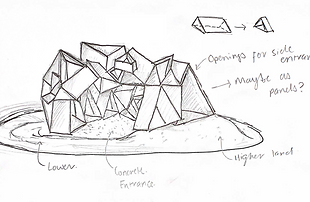 Openings for side
entran
Maybe as
panels?
Lower.
Concrete
Entrance
Higher land